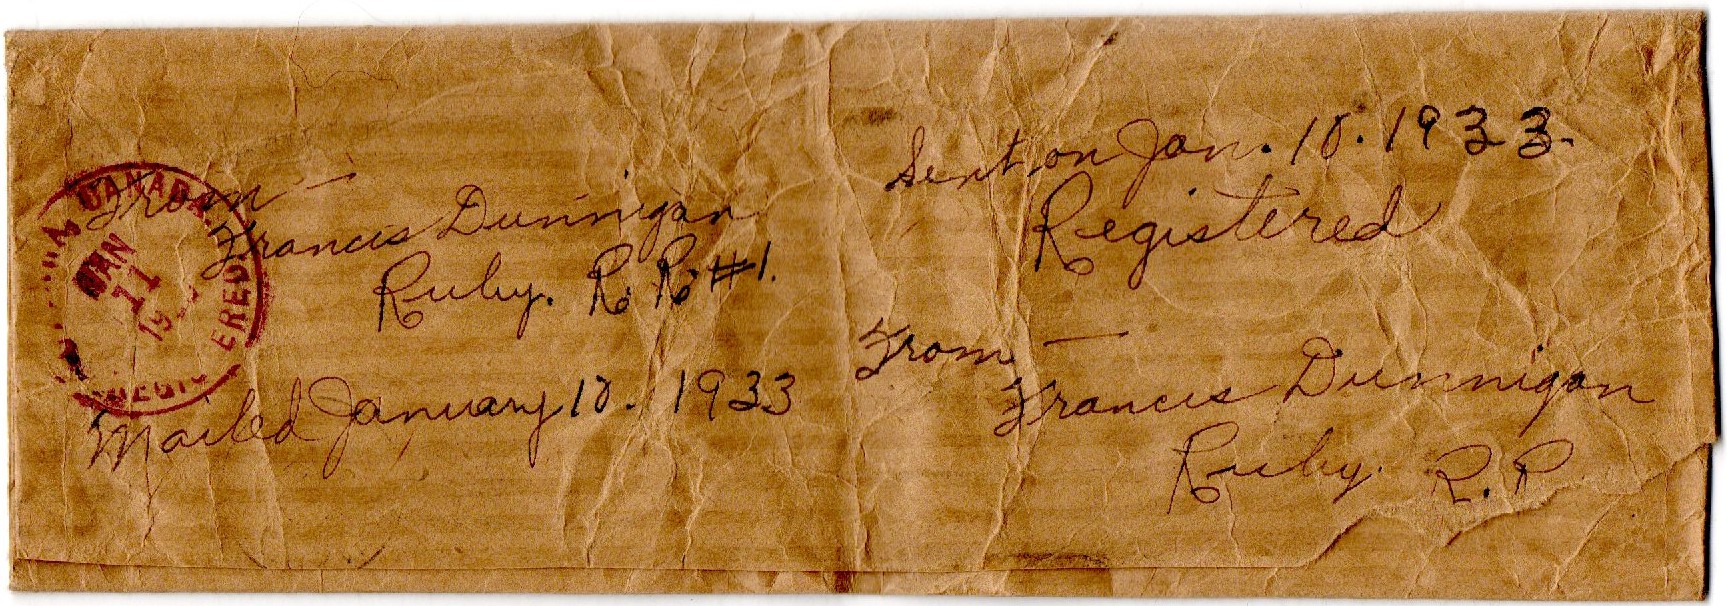 From —
Francis Dunnigan
Ruby. R. R. #1.
Mailed January 10. 1933
CANADA
JAN
11
ERED
Sent on Jan. 10. 1933.
Registered
From —
Francis Dunnigan
Ruby. R. R